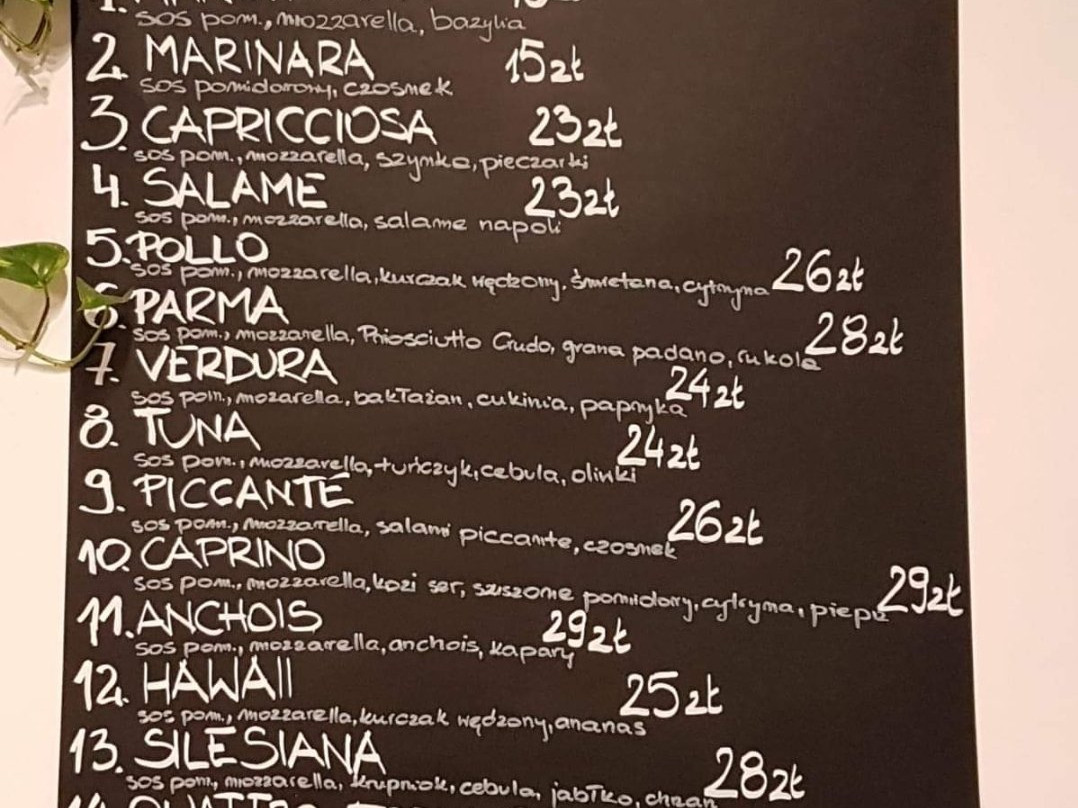 1.
sos pom., mozzarella, bazylia
2. MARINARA 15zł
sos pomidorowy, czosnek
3. CAPRICCIOSA 23zł
sos pom., mozzarella, szynka, pieczarki
4. SALAME 23zł
sos pom., mozzarella, salame napoli
5. POLLO
sos pom., mozzarella, kurczak wędzony, śmietana, cytryna 26zł
6 PARMA
sos pom., mozzarella, Priosciutto Crudo, grana padano, rukola 28zł
7. VERDURA
sos pom., mozarella, bakłażan, cukinia, papryka 24zł
8. TUNA
sos pom., mozzarella, tuńczyk, cebula, oliwki 24zł
9. PICCANTE
sos pom., mozzarella, salami piccante, czosnek 26zł
10. CAPRINO
sos pom., mozzarella, kozi ser, suszone pomidory, cytryna, pieprz 29zł
11. ANCHOIS 29zł
sos pom., mozzarella, anchois, kapary
12. HAWAII 25zł
sos pom., mozzarella, kurczak wędzony, ananas
13. SILESIANA 28zł
sos pom., mozzarella, krupniok, cebula, jabłko, chrzan
14 QUATTRO